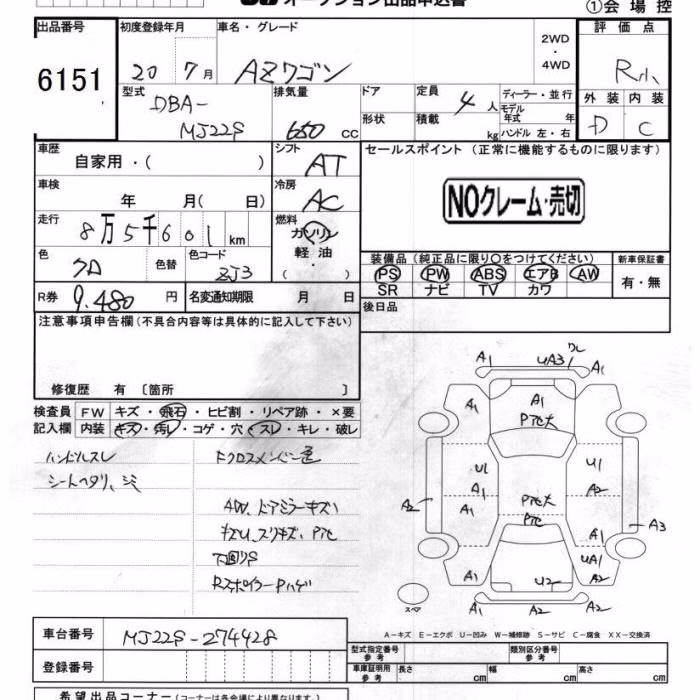 オークション出品申込書
①会場控
出品番号
6151
初度登録年月
20年7月
車名・グレード
AZワゴン
2WD・4WD
評価点
R小
外装 内装
D C
型式
DBA-
MJ22S
排気量
650 cc
ドア
形状
定員
4人
積載
kg
ディーラー・並行
モデル年式 年
ハンドル 左・右
車歴
自家用・( )
シフト
AT
セールスポイント (正常に機能するものに限ります)
NOクレーム・売切
車検
年 月( 日)
冷房
AC
走行
8万5千601km
燃料
ガソリン
軽油
・( )
色
クロ
色替
色コード
ZJ3
装備品(純正品に限り○をつけてください)
PS PW ABS エアB AW
SR ナビ TV カワ
新車保証書
有・無
R券
9,480円
名変通知期限 月 日
後日品
注意事項申告欄(不具合内容等は具体的に記入して下さい)
修復歴 有 〔箇所 〕
検査員記入欄
FW キズ・飛石・ヒビ割・リペア跡・×要
内装 キズ・汚レ・コゲ・穴・スレ・キレ・破レ
ハンドルスレ
シートヘタリ、シミ
AW、ドアミラーキズ
キズU、スリキズ、Pアセ
下回りS
RスポイラーPハゲ
A1 UA3 ワレ A1
A1 A1 A1
Pアセ大
U1 U1
A1 A2
A2 A1 Pアセ大
Pアセ A1 A3
UA1
A1 U2 A2
A1 A2
スペア
A-キズ E-エクボ U-凹み W-補修跡 S-サビ C-腐食 XX-交換済
車台番号
MJ22S-274428
登録番号
型式指定番号 参考
類別区分番号 参考
車庫証明用 参考
長さ cm 幅 cm 高さ cm
希望出品コーナー(コーナーは各会場で異なります。)